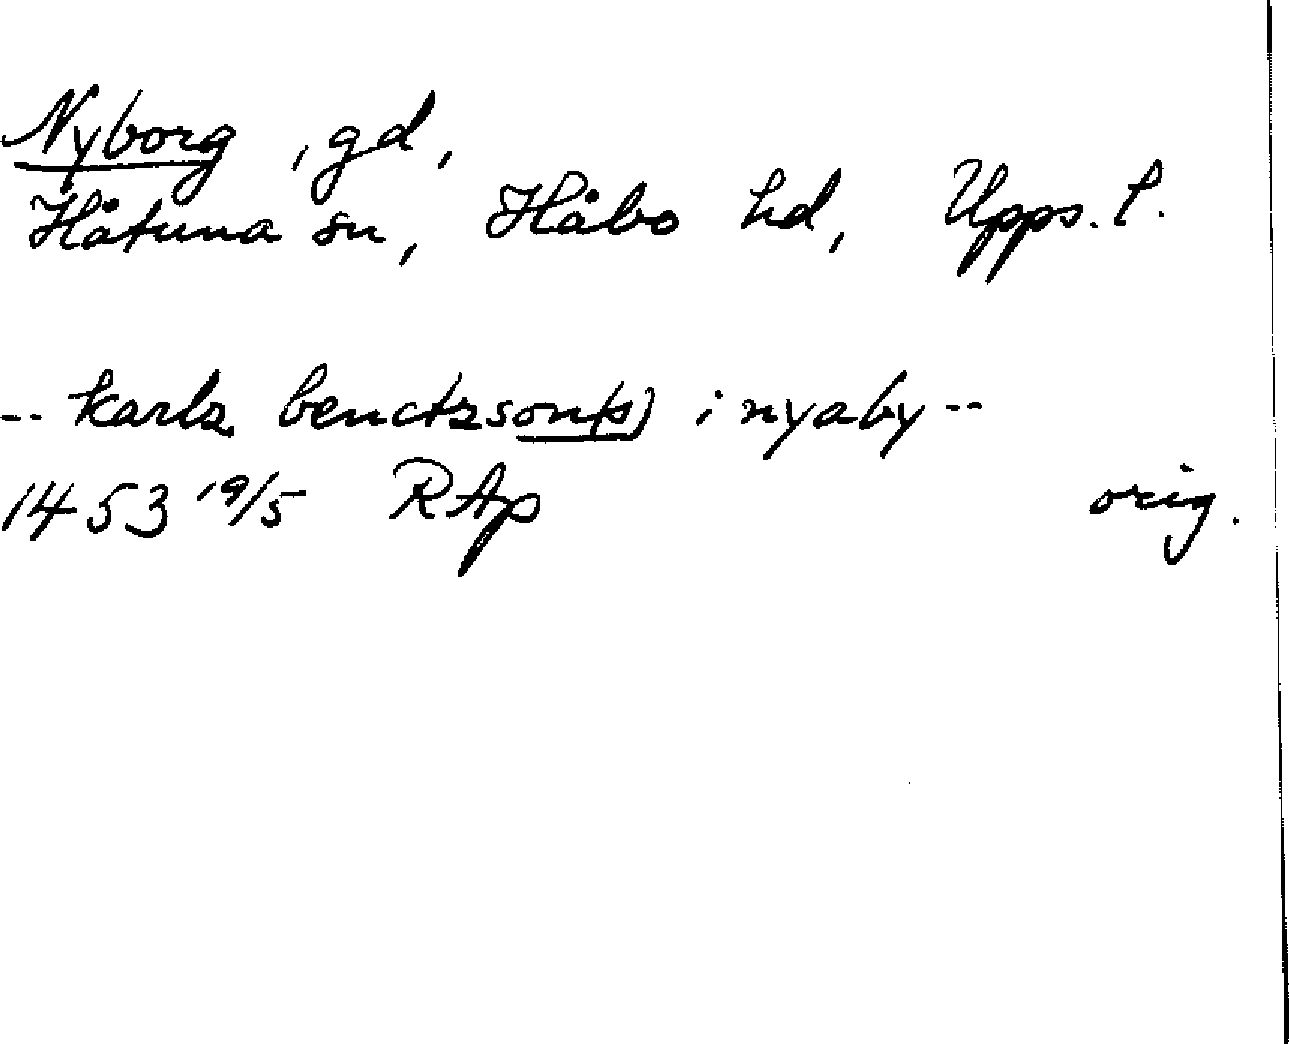 Nyborg, gd,
Håtuna sn, Håbo hd, Upps. l.
-- karlz benctzson(s) i nyaby --
1453 19/5 RAp orig.